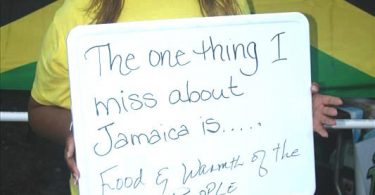 The one thing I
miss about
Jamaica is.....
Food & Warmth of the
PEOPLE